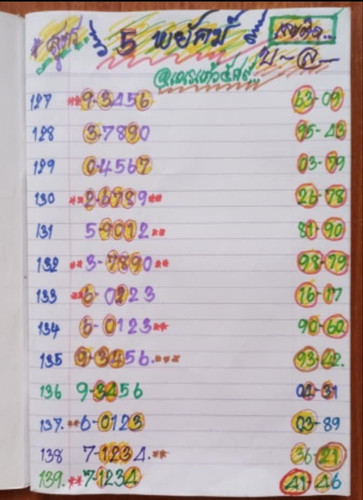 * สูตร 5 พยัคฆ์ เลขติด..
บ~ล~
127 **9-3456 63-09
128 3-7890 95-43
129 0-4567 03-79
130 **2-6789** 26-78
131 5-9012** 81-90
132 **3-7890** 98-79
133 **6-0123 16-17
134 6-0123** 90-60
135 9-3456.*** 93-42.
136 9-3456 04-31
137.**6-0123 03-89
138 7-1234.** 36-21
139.**7-1234 41-46